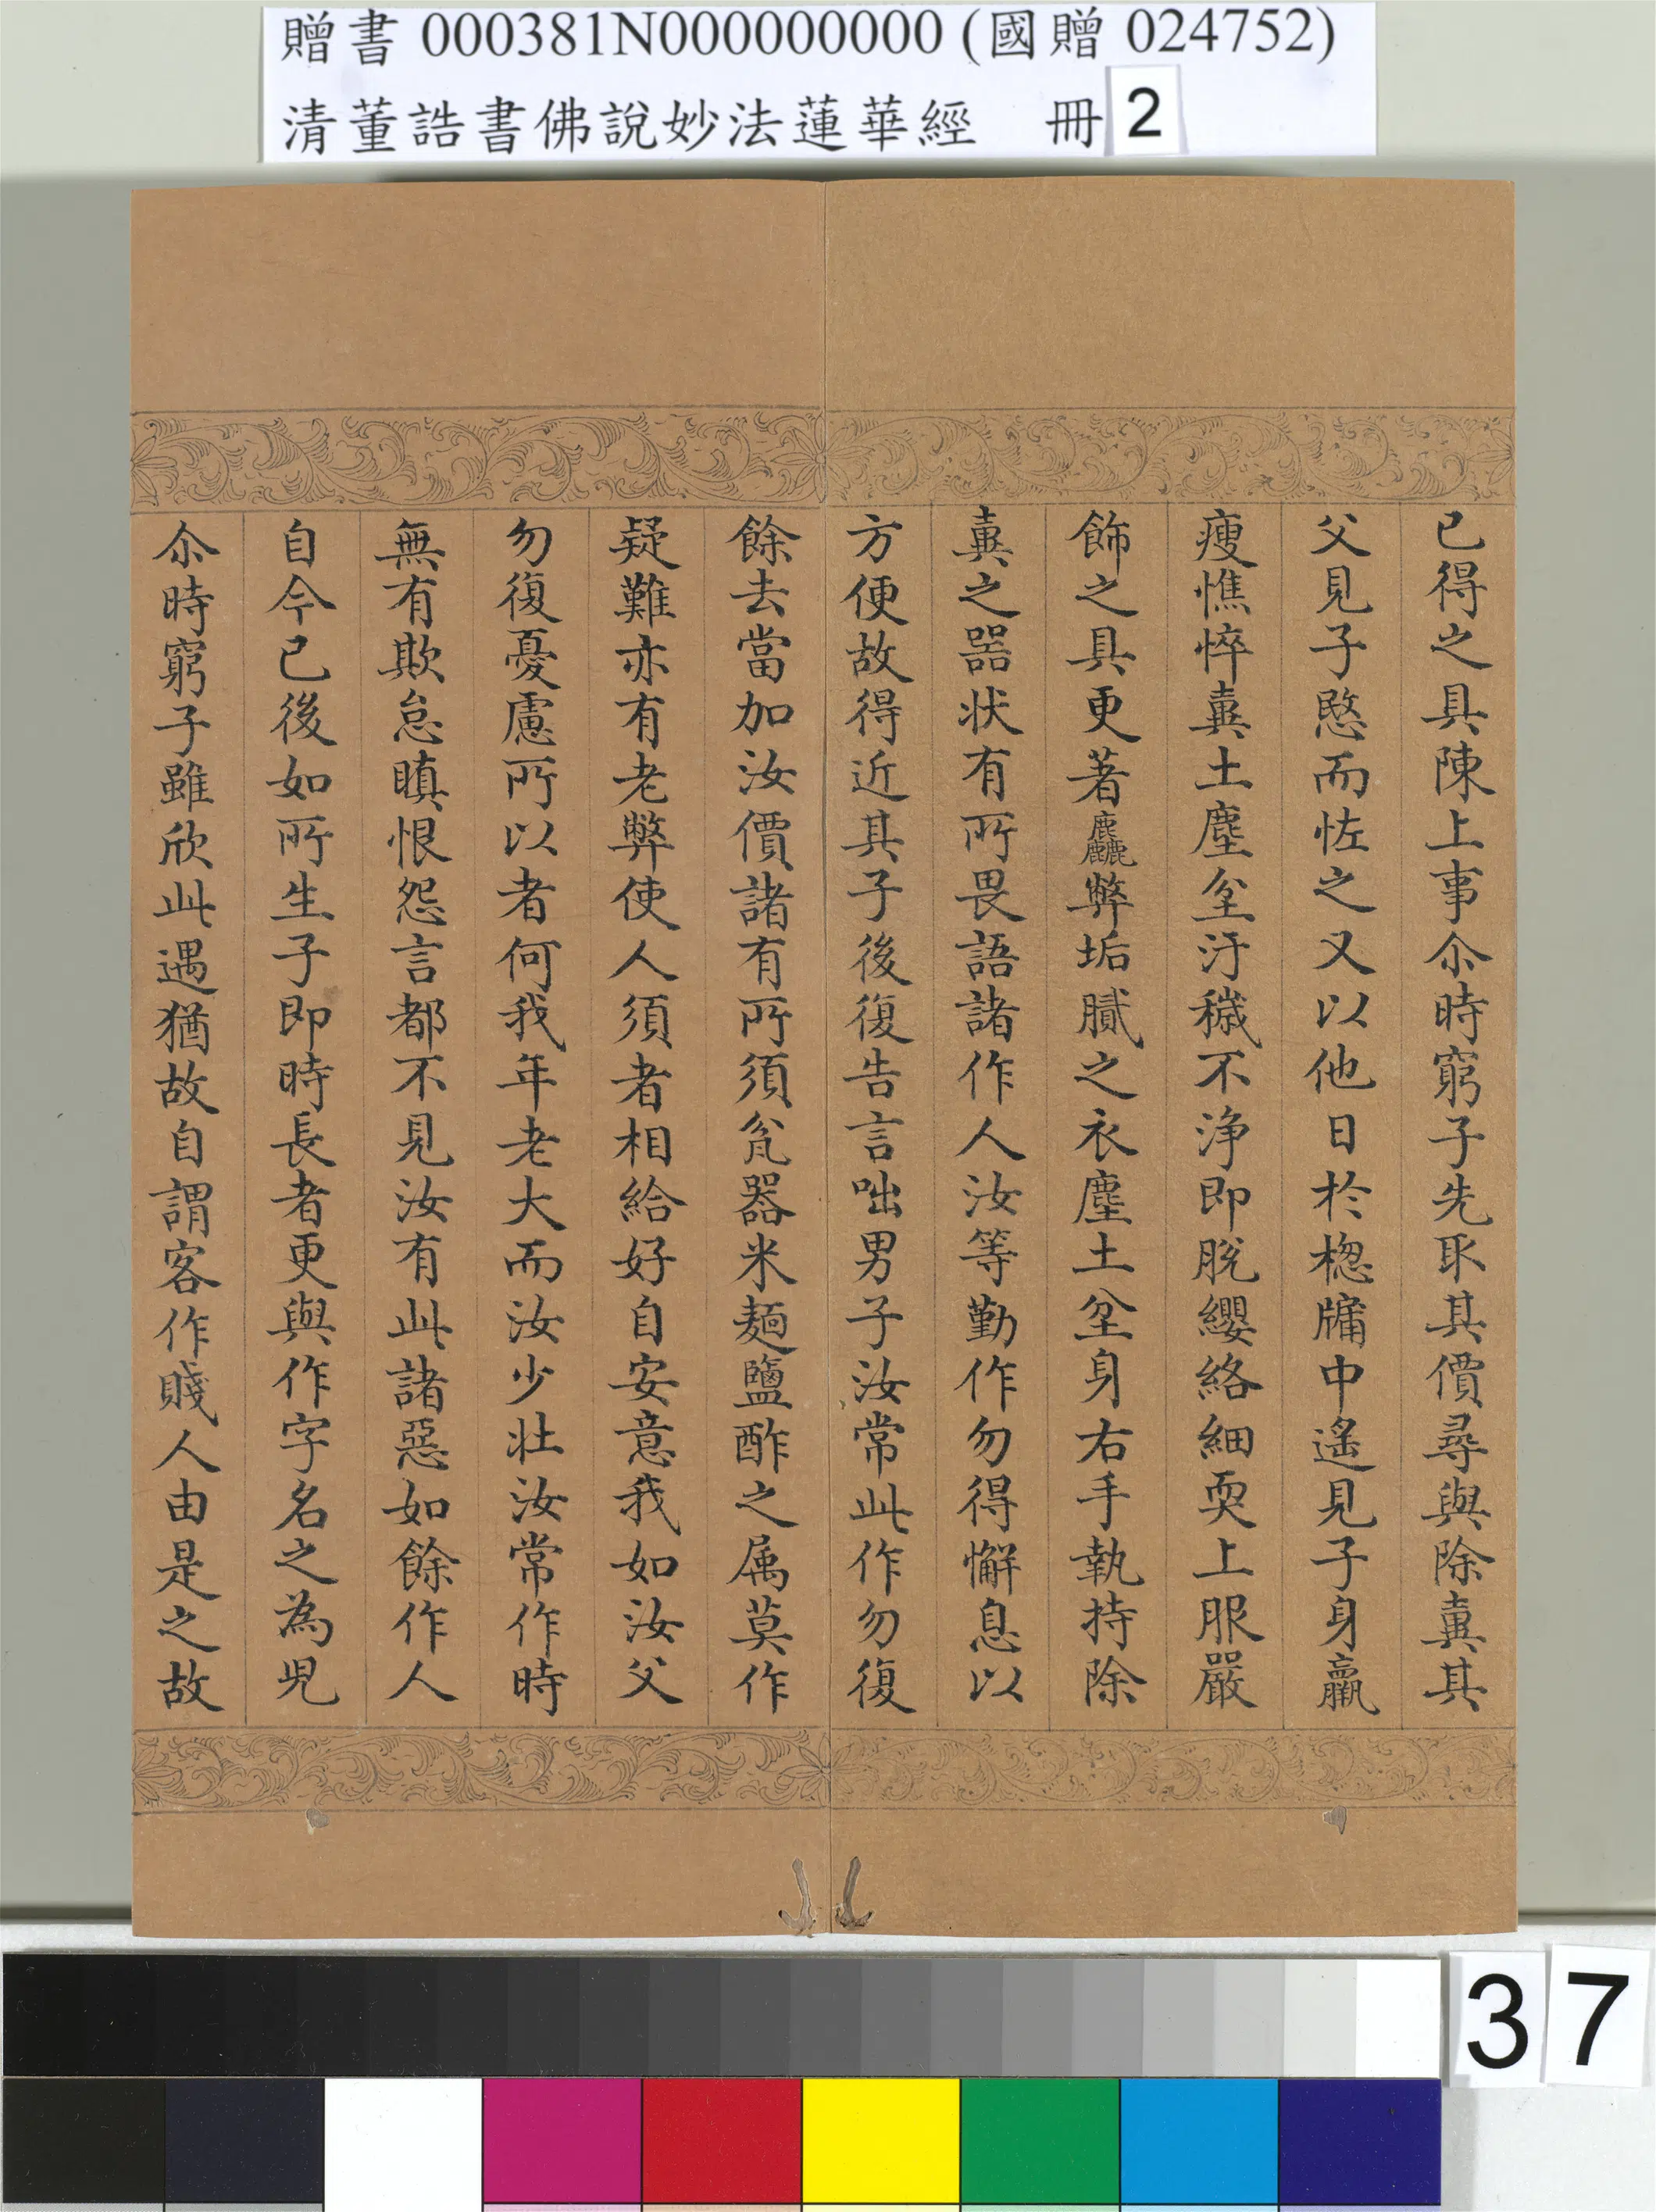 贈書 000381N000000000 (國贈 024752)
清董誥書佛說妙法蓮華經 冊 2
已得之具陳上事尒時窮子先取其價尋與除糞其
父見子愍而怪之又以他日於牎牖中遙見子身羸
瘦憔悴糞土塵坌汙穢不淨即脫纓絡細耎上服嚴
飾之具更著麤弊垢膩之衣塵土坌身右手執持除
糞之器狀有所畏語諸作人汝等勤作勿得懈息以
方便故得近其子後復告言咄男子汝常此作勿復
餘去當加汝價諸有所須瓫器米麵鹽酢之属莫作
疑難亦有老弊使人須者相給好自安意我如汝父
勿復憂慮所以者何我年老大而汝少壯汝常作時
無有欺怠瞋恨怨言都不見汝有此諸惡如餘作人
自今已後如所生子即時長者更與作字名之為兒
尒時窮子雖欣此遇猶故自謂客作賤人由是之故
37